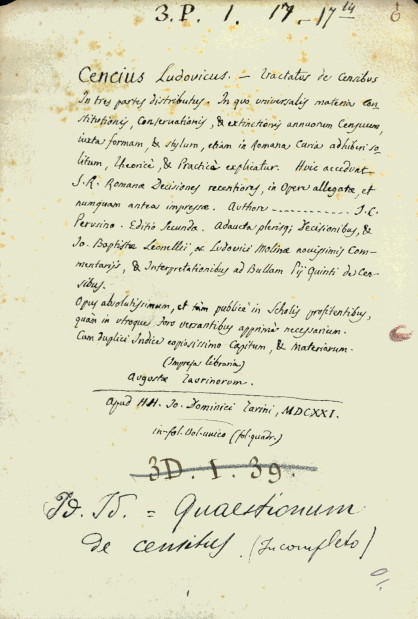 3. P. 1. 17 - 17 14
Cencius Ludovicus. — Tractatus de Censibus
In tres partes distributus. In quo universalis materia con-
stitutionis, Conservationis, & extinctionis annuorum Censuum,
iuxta formam, & stylum, etiam in Romana Curia adhiberi so-
litum, theoricè, & Practicè explicatur. Huic accedunt
S. R. Romanae Decisiones recentiores, in Opere allegatae, et
numquam antea impressae. Authore ———— I. C.
Perusino. Editio Secunda. Adaucta plerisq; Decisionibus, &
Io. Baptistae Leonelli, ac Ludovici Molinae novissimis Com-
mentarijs, & Interpretationibus ad Bullam Pij Quinti de Cen-
sibus.
Opus absolutissimum, et tàm publicè in Scholis profitentibus,
quàm in utroque foro versantibus apprimè necessarium.
Cum duplici Indice copiosissimo Capitum, & Materiarum.
(Impresa libraria)
Augustae Taurinorum.
Apud HH. Io. Dominici Tarini, MDCXXI.
in-fol. Vol. unico (fol. quadr.)
3D. I. 39.
Id. Id. = Quaestionum
de censibus. (Incompleto)